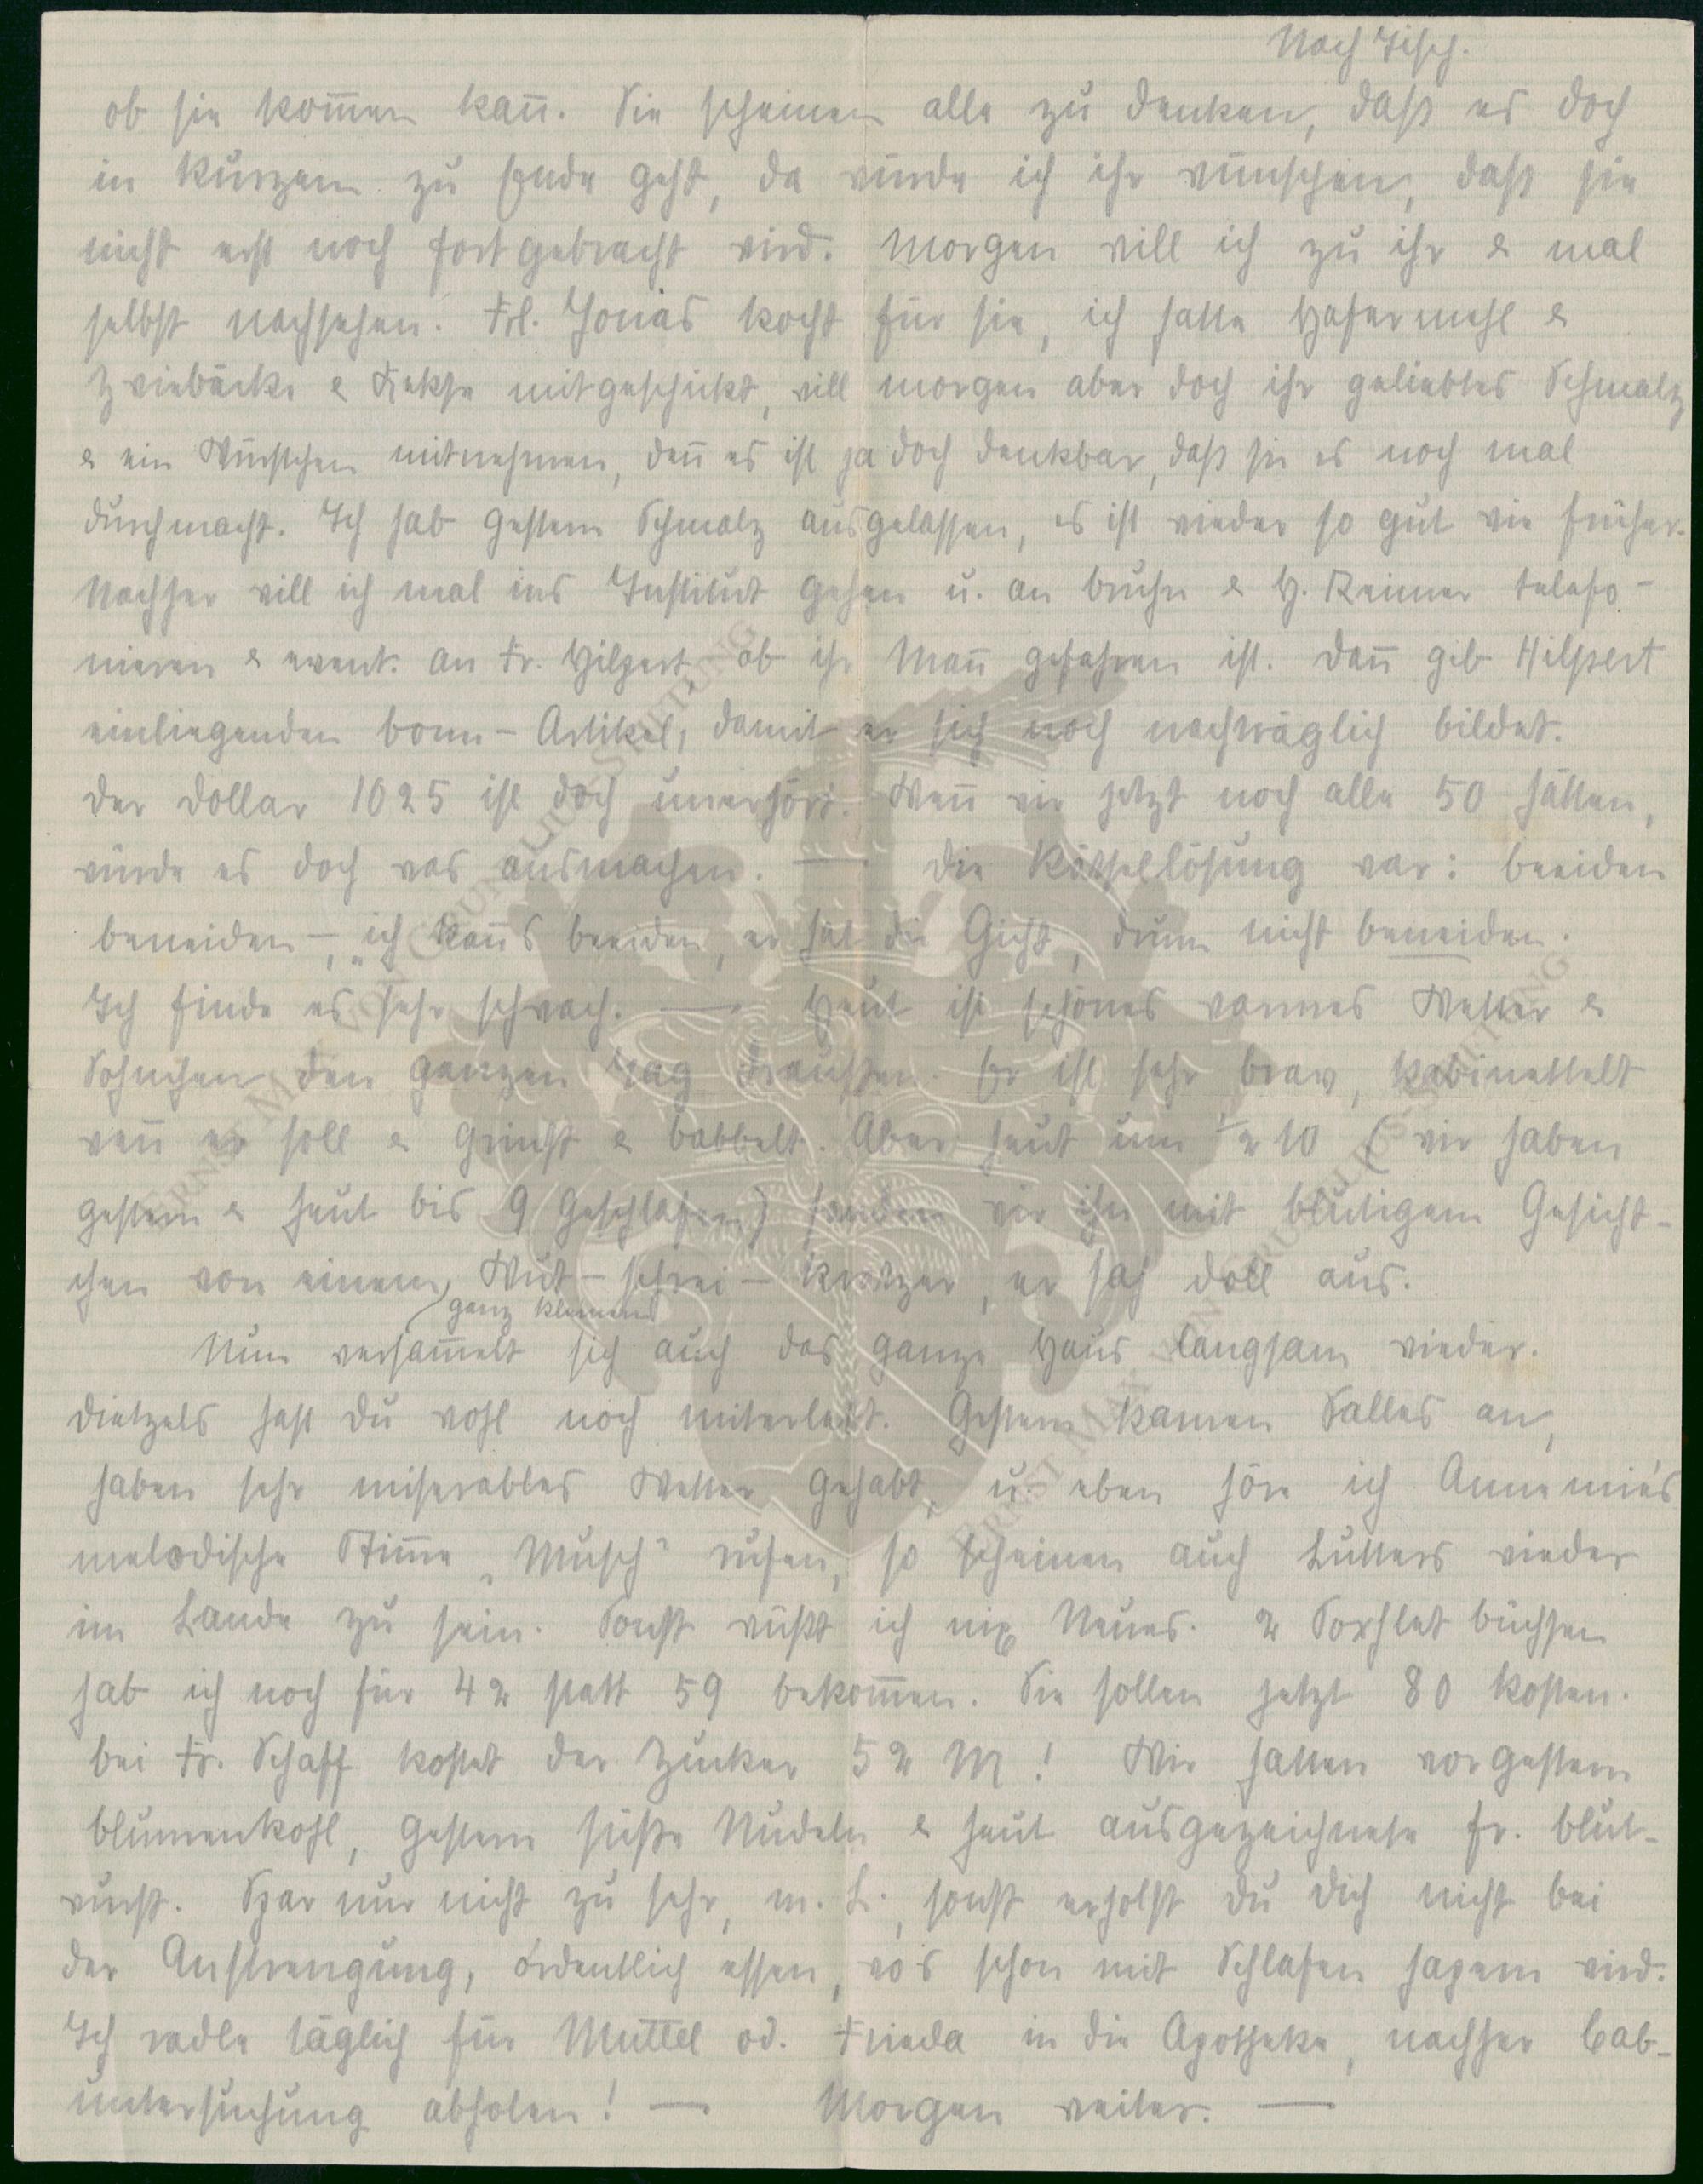 Nach Tisch.
ob sie kom̅en kan̅. Sie scheinen alle zu denken, daß es doch
in kurzem zu Ende geht, da würde ich ihr wünschen, daß sie
nicht erst noch fortgebracht wird. Morgen will ich zu ihr & mal
selbst nachsehen. Frl. Jonas kocht für sie, ich hatte Hafermehl &
Zwiebäcke & Kekse mitgeschickt, will morgen aber doch ihr geliebtes Schmalz
& ein Würstchen mitnehmen, den̅ es ist ja doch denkbar, daß sie es noch mal
durchmacht. Ich hab gestern Schmalz ausgelassen, es ist wieder so gut wie früher.
Nachher will ich mal ins Institut gehen u. an Bruhn & H. Reimer telefo-
nieren & event. an Fr. Hilpert, ob ihr Man̅ gefahren ist. Dan̅ gib Hilpert
einliegenden Born-Artikel, damit er sich noch nachträglich bildet.
Der Dollar 1025 ist doch unerhört. Wen̅ wir jetzt noch alle 50 hätten,
würde es doch was ausmachen. — Die Rätsellösung war: beeiden
beneiden —, „ich kan̅s beeiden, er hat die Gicht, drum nicht beneiden.
Ich finde es sehr schwach. — Heut ist schönes warmes Wetter &
Söhnchen den ganzen Tag draußen. Er ist sehr brav, kabinettelt
wen̅ er soll & grinst & babbelt. Aber heut um ½ 10 (wir haben
gestern & heut bis 9 geschlafen) fanden wir ihn mit blutigem Gesicht-
chen von einem Wut-schrei-kratzer, er sah doll aus.
ganz kleinen
Nun versam̅elt sich auch das ganze Haus langsam wieder.
Dietzels hast Du wohl noch miterlebt. Gestern kamen Salles an,
haben sehr miserables Wetter gehabt, u. eben höre ich Annemie's
melodische Stim̅e „Musch" rufen, so scheinen auch Lutters wieder
im Lande zu sein. Sonst wüßt ich nix Neues. 2 Soxhlet büchsen
hab ich noch für 42 statt 59 bekom̅en. Sie sollen jetzt 80 kosten.
Bei Fr. Schaff kostet der Zucker 52 M! Wir hatten vorgestern
Blumenkohl, gestern süße Nudeln & heut ausgezeichnete fr. Blut-
wurst. Spar nur nicht zu sehr, m. L., sonst erholst Du Dich nicht bei
der Anstrengung, ordentlich essen, wo's schon mit Schlafen hapern wird.
Ich radle täglich für Muttel od. Frieda in die Apotheke, nachher
untersuchung abholen! — Morgen weiter. —
ERNST MAX VON GRUNELIUS-STIFTUNG
ERNST MAX VON GRUNELIUS-STIFTUNG